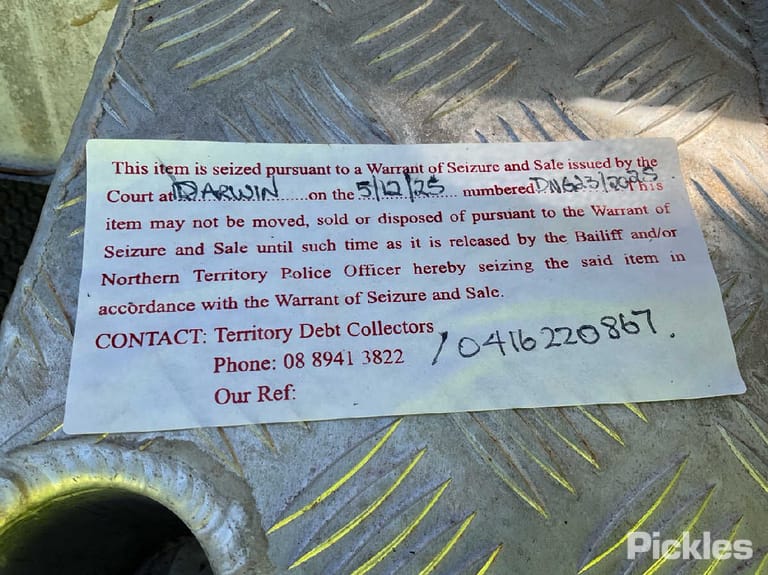 This item is seized pursuant to a Warrant of Seizure and Sale issued by the
Court at DARWIN on the 5/12/25 numbered DN623/2025. This
item may not be moved, sold or disposed of pursuant to the Warrant of
Seizure and Sale until such time as it is released by the Bailiff and/or
Northern Territory Police Officer hereby seizing the said item in
accordance with the Warrant of Seizure and Sale.
CONTACT: Territory Debt Collectors
Phone: 08 8941 3822 / 0416220867.
Our Ref:
Pickles